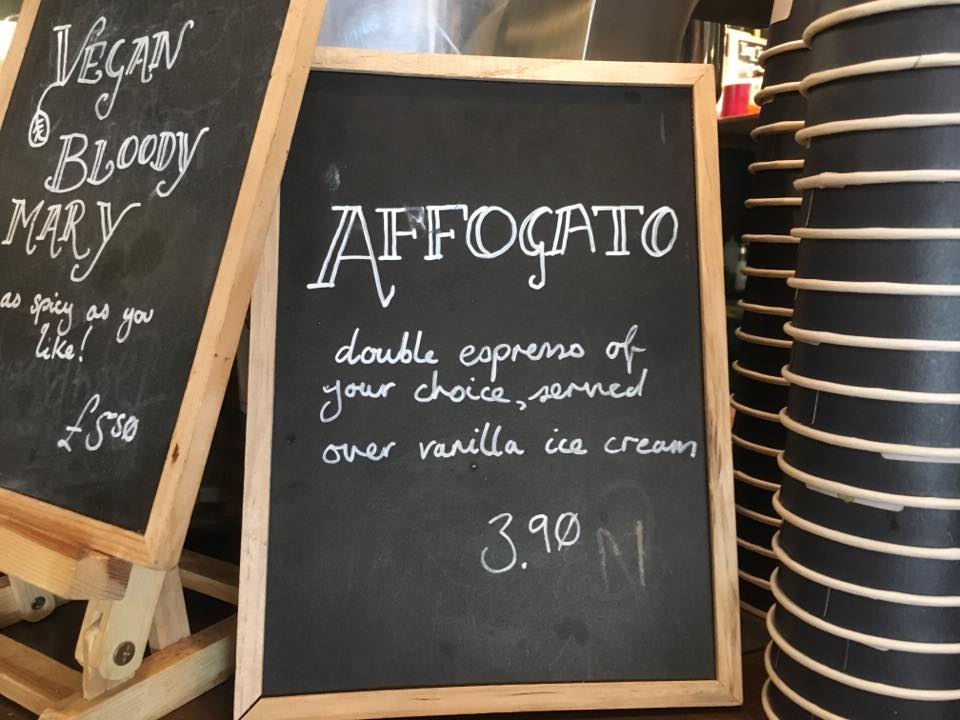 VEGAN
BLOODY
MARY
as spicy as you
like!
£5.50
AFFOGATO
double espresso of
your choice, served
over vanilla ice cream
3.90